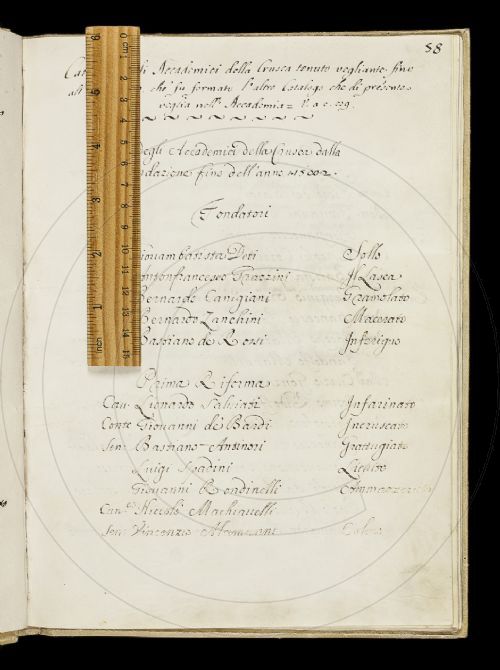 88
Cat di Accademici della Crusca tenuto vegliante fino
all che fu formato l'altro Catalogo che di presente
veglia nell'Accademia = V. a c. 109.
degli Accademici della Crusca dalla
ndazione fino dell'anno
Fondatori
iovambatista Deti Sollo
ntonfrancesco Grazzini Il Lasca
Bernardo Canigiani Gramolato
Bernardo Zanchini Macerato
Bastiano de Rossi Inferigno
Prima Riforma
Cav. Lionardo Salviati Infarinato
Conte Giovanni de Bardi Incruscato
Sen. Bastiano Antinori Grattugiato
Luigi
Giovanni Rondinelli
Can. Machiavelli
Sen. Vincenzio Alamanni